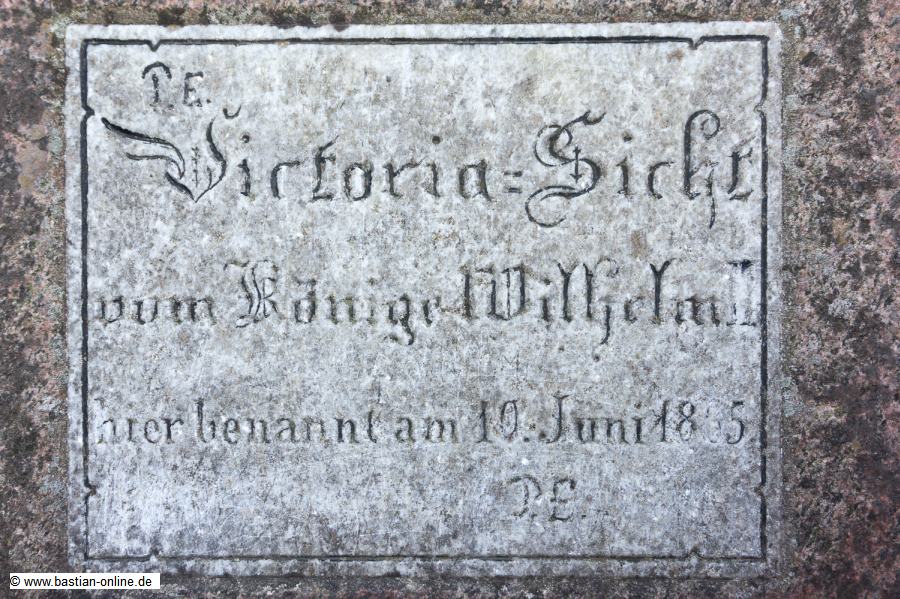 T.E.
Victoria=Sicht
vom Könige Wilhelm I
hier benannt am 10. Juni 1865
P.E.
© www.bastian-online.de